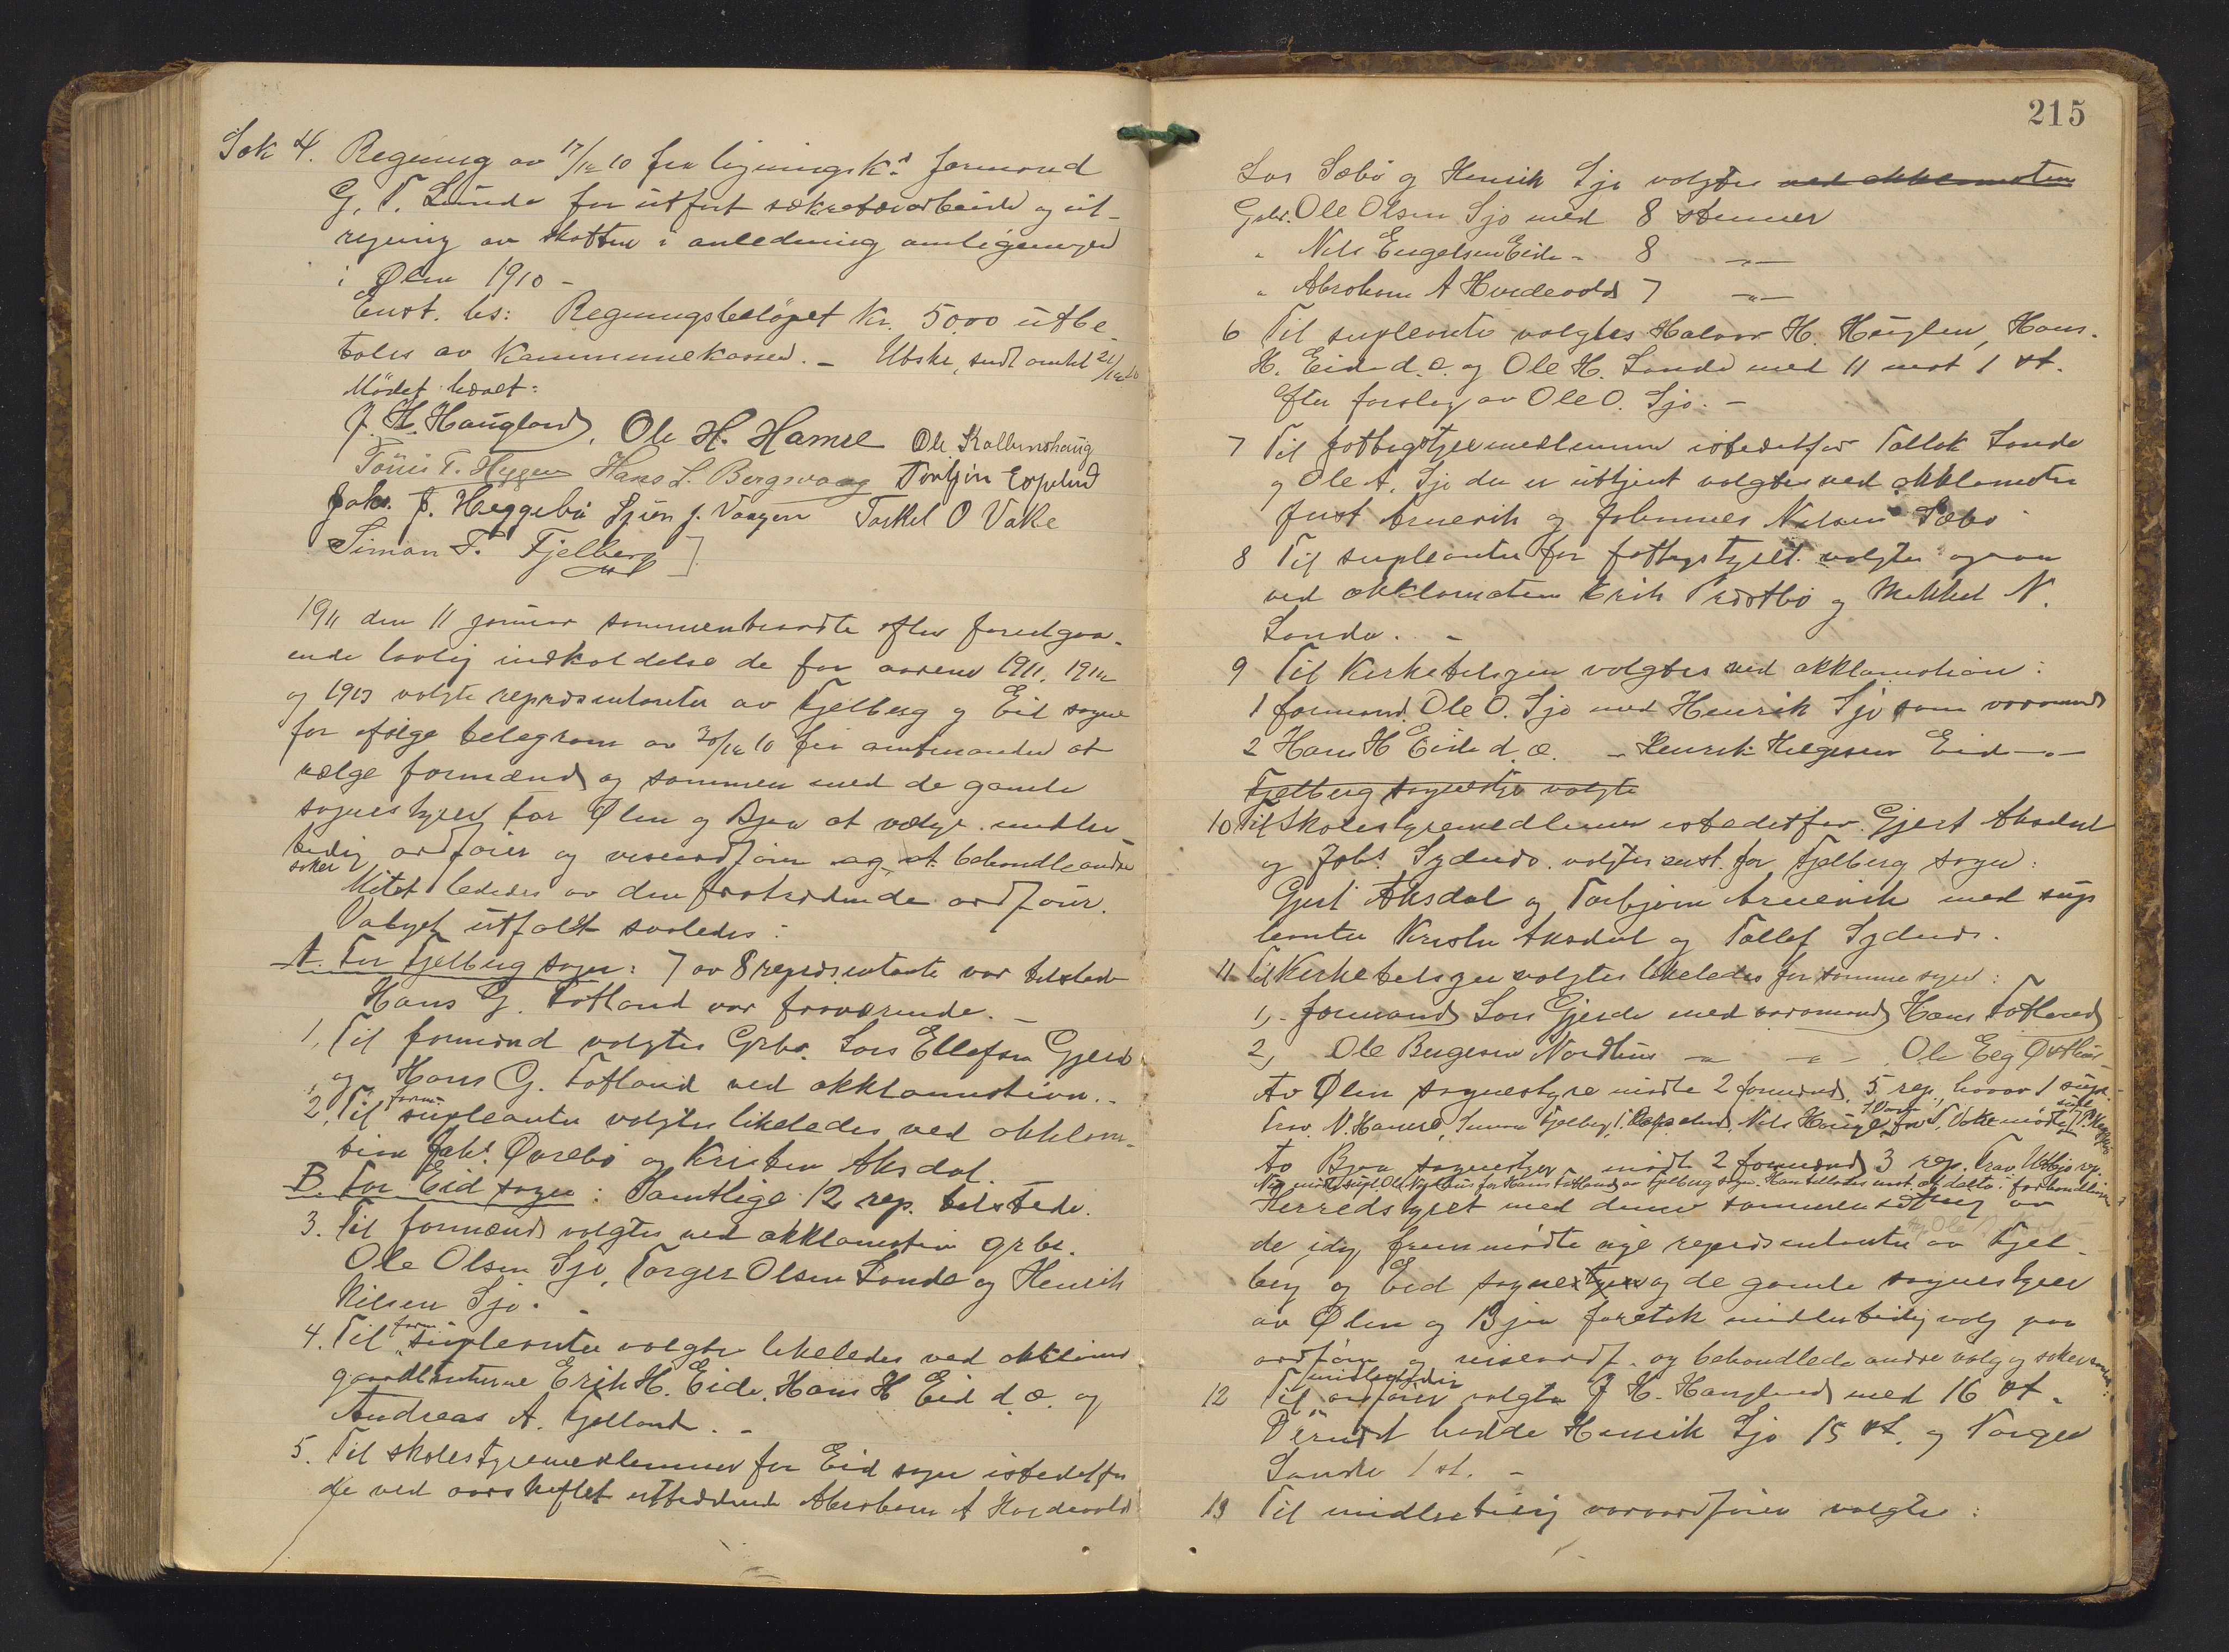 Sak 4. Regning av 17/12 10 fra ligningsk.s formand
G. T. Lunde for utført sekretærarbeide og ut-
regning av skatten i anledning omligningen
i Ølen 1910 -
Enst. bs: Regningsbeløpet Kr. 50.00 utbe-
tales av Kommunekassen. - Utskr. sendt amtet 21/12 10
Mödet hævet:
J. H. Haugland, Ole H. Hamre Ole Kallevshaug
Tönis T. Heggen Hans L. Bergsvaag Torbjön Espeland
Jak. J. Heggebö Sjur J. Vaagen Torkel O Vake
Simon T. Fjelberg
1911 den 11 januar sammentraadte efter foregaa-
ende lovlig indkaldelse de for aarene 1911, 1912
og 1913 valgte repræsentanter av Fjelberg og Eid sogne
for ifølge telegram av 30/12 10 fra amtmanden at
vælge formænd og sammen med de gamle
sognestyrer for Ølen og Bjoa at vælge midler-
tidig ordfører og viseordfører og at behandle andre
saker
Mötet lededes av den fratrædende ordförer.
Valget utfaldt saaledes:
A. For Fjelberg sogn: 7 av 8 repræsentanter var tilstede
Hans G. Tofland var fraværende. -
1, Til formænd valgtes Grbr. Lars Ellefsen Gjerde
og Hans G. Tofland ved akklamation. -
2, Til form. supleanter valgtes likeledes ved akklama-
tion Jak. Øvrebö og Kristen Aksdal.
B. For Eid sogn: Samtlige 12 rep. tilstede.
3. Til formænd valgtes ved akklamation grbr.
Ole Olsen Sjo, Torger Olsen Sande og Henrik
Nilsen Sjo. -
4. Til form. supleanter valgtes likeledes ved akklama
gaardbrukerne Erik H. Eide, Hans H Eid d. æ. og
Andreas A. Fjelland. -
5. Til skolestyremedlemmer for Eid sogn istedetfor
de ved aarskiftet uttrædende Abraham A Hordevold
215
Lars Sæbö og Henrik Sjo valgtes ved akklamation
Grbr. Ole Olsen Sjo med 8 stemmer
" Nils Engelsen Eide - 8 -"-
" Abraham A Hordevold 7 -"-
6 Til supleanter valgtes Halvor H. Heuglen, Hans
H. Eide d. æ. og Ole H. Sande med 11 mot 1 st.
Efter forslag av Ole O. Sjo. -
7 Til fattigstyremedlemmer istedetfor Tallak Sande
og Ole A. Sjo der er uttjent valgtes ved akklamation
Just Arnevik og Johannes Nilsen Sæbö
8 Til supleanter for fattigstyret valgtes ogsaa
ved akklamation Erik Prestbö og Mikkel N.
Sande. -
9 Til Kirketilsyn valgtes ved akklamation:
1 formand. Ole O. Sjo med Henrik Sjo som varamand
2 Hans H Eide d. æ. - Henrik Helgesen Eid -"-
Fjelberg sognestyre valgte
10 Til Skolestyremedlemmer istedetfor Gjert Aksdal
og Johs Sydnes valgtes enst. for Fjelberg sogn:
Gjert Aksdal og Torbjørn Arnevik med sup
leanter Kristen Aksdal og Tollef Sydnes.
11 Til Kirketilsyn valgtes likeledes for samme sogn:
1, formand Lars Gjerde med varamand Hans Tofland
2, Ole Bergesen Nordhus -"- -"- Ole Eeg Østhus
Av Ølen sognestyre mötte 2 formænd, 5 rep., hvorav 1 supl.
Frav. N. Hamre, Simon Fjelberg, T. Espeland, Nils Hauge for T. Vake mötte
Av Bjoa sognestyre mötte 2 formænd 3 rep. Frav. Utbjo rep.
Nu mötte supl Ole Nordhus for Hans Tofland av Fjelberg sogn. Han tillodes enst. at delta i forhandlingen
Herredstyret med denne sammensætning av
de idag fremmötte nye repræsentanter av Fjel-
berg og Eid sognestyrer og de gamle sognestyrer
av Ølen og Bjoa foretok midlertidig valg paa
ordförer og viseordf. og behandlede andre valg og saker
12 Til midlertidig ordförer valgtes J H. Haugland med 16 st.
Dernæst hadde Henrik Sjo 15 st. og Torger
Sande 1 st. -
13 Til midlertidig varaordförer valgtes: